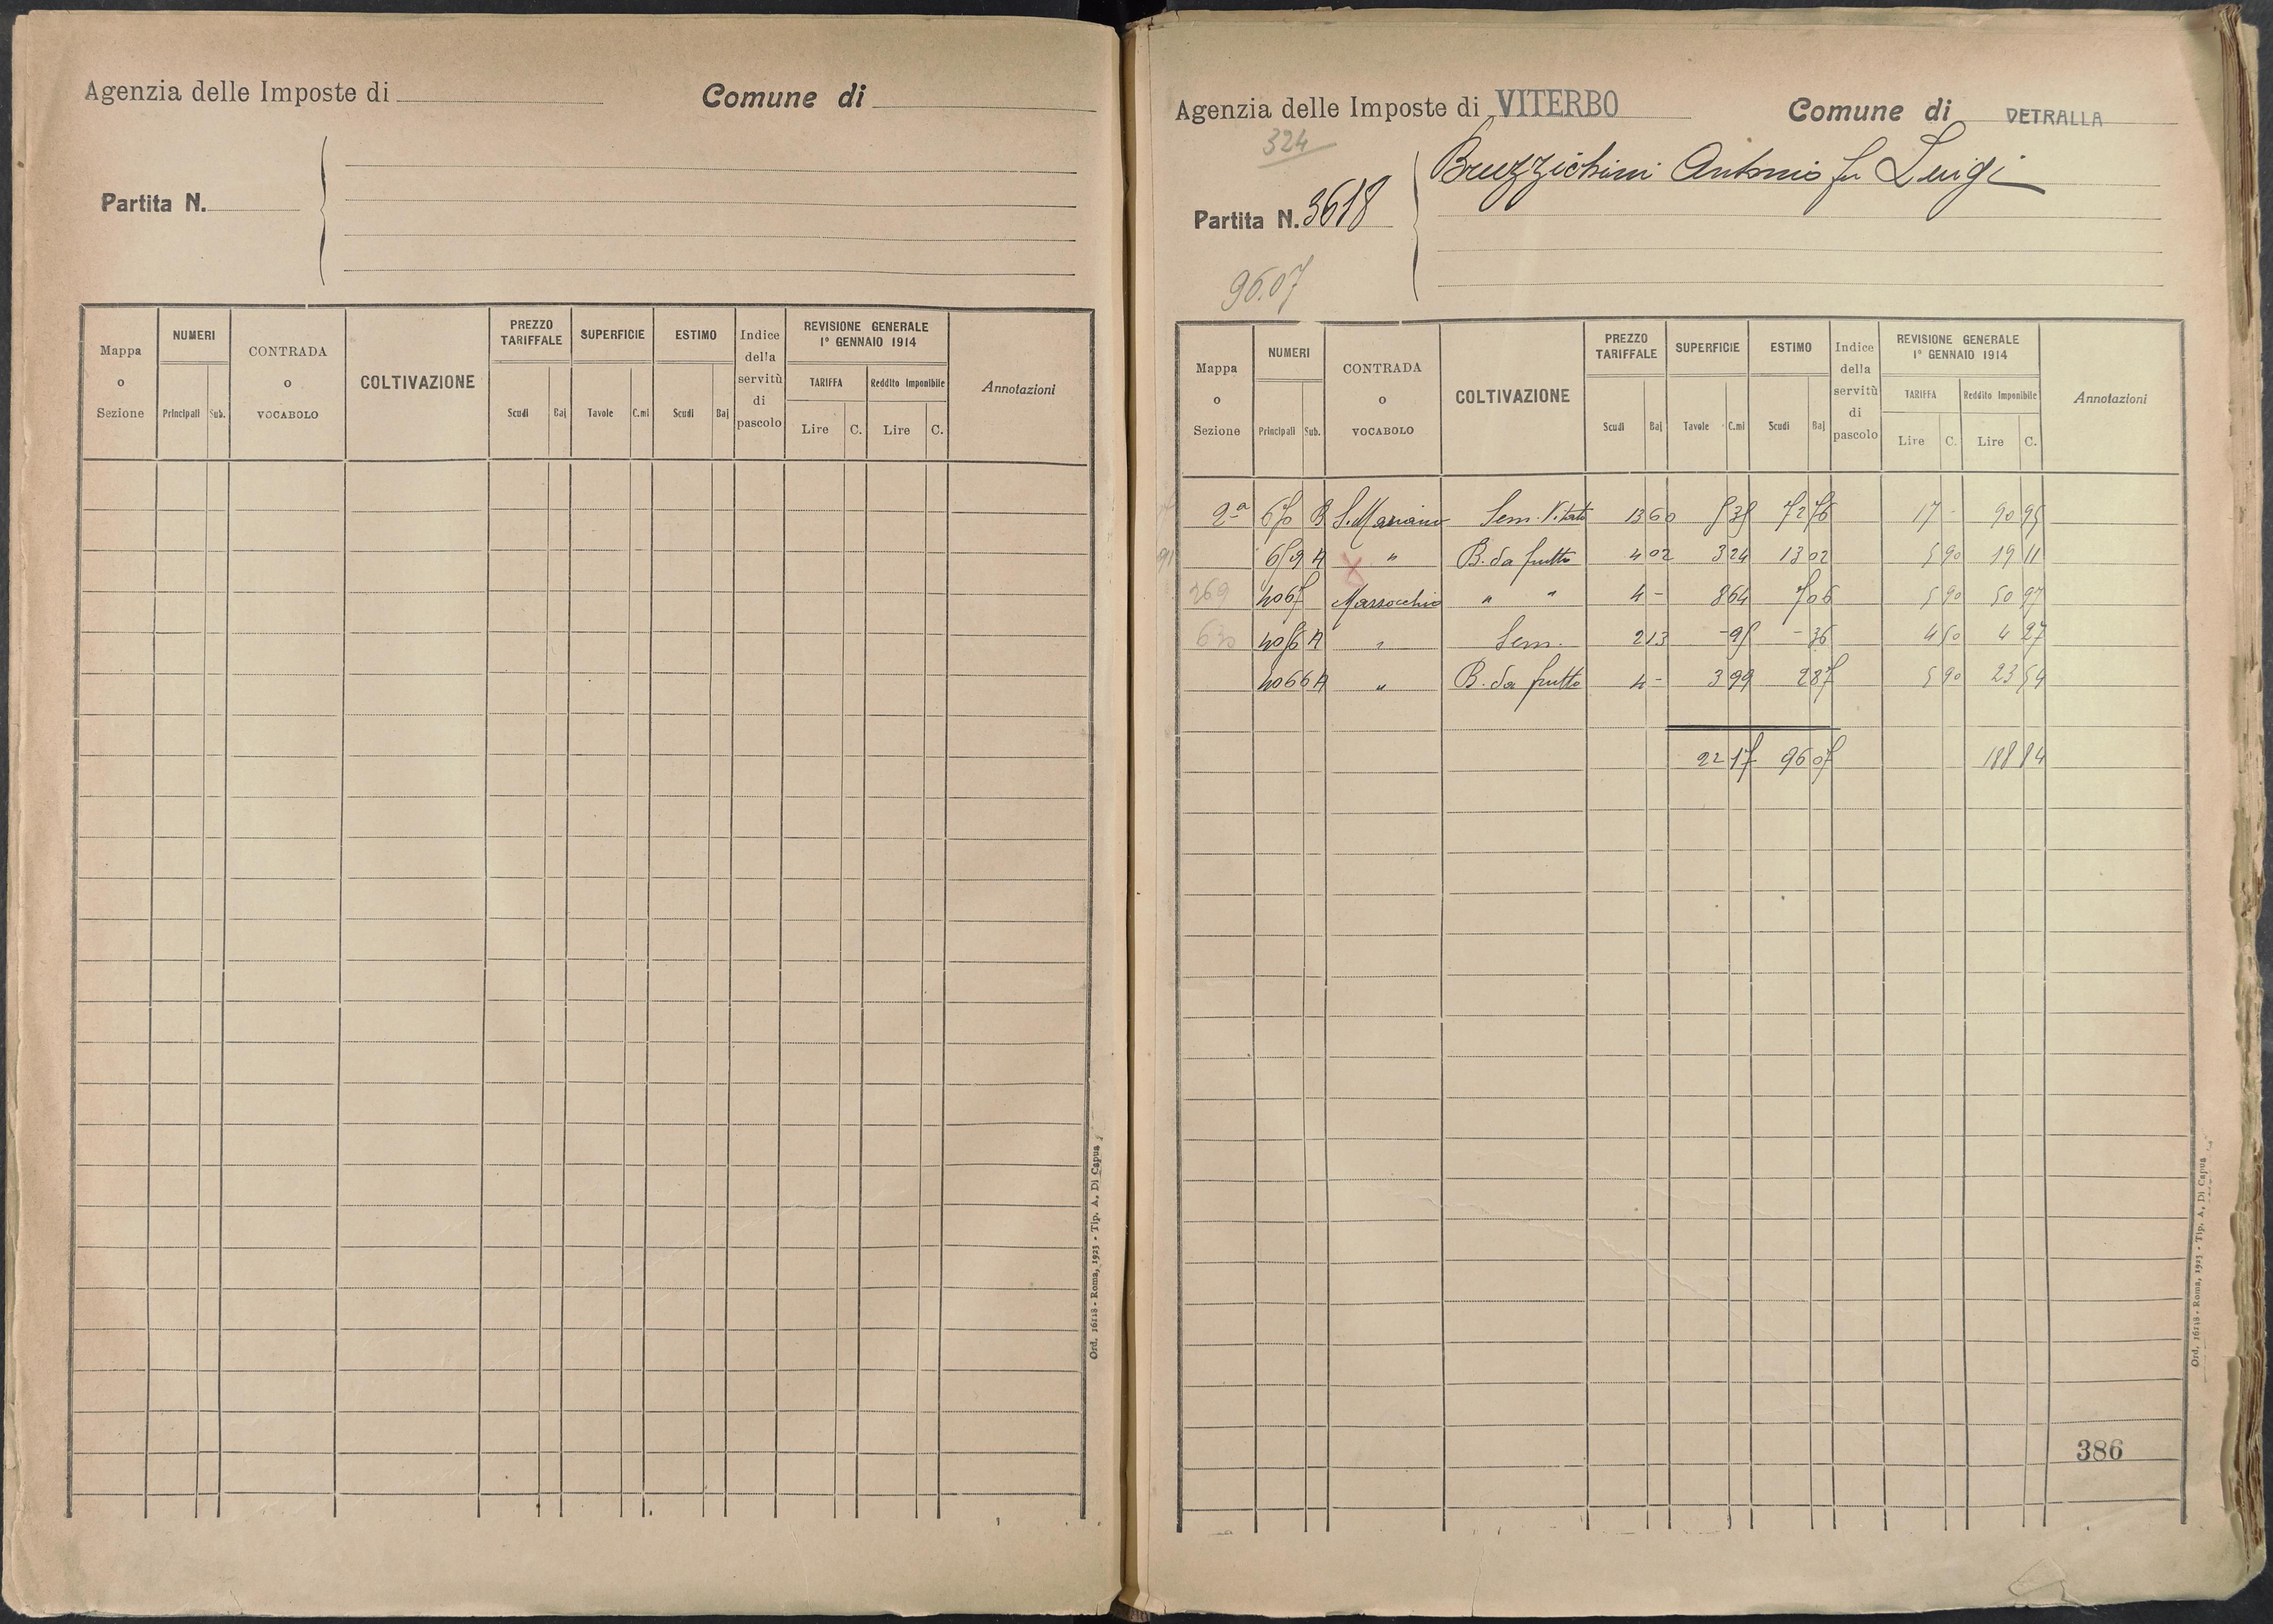 Agenzia delle Imposte di
Comune di
Partita N.
Mappa o Sezione
NUMERI
Principali Sub.
CONTRADA o VOCABOLO
COLTIVAZIONE
PREZZO TARIFFALE
Scudi Baj
SUPERFICIE
Tavole C.mi
ESTIMO
Scudi Baj
Indice della servitù di pascolo
REVISIONE GENERALE 1° GENNAIO 1914
TARIFFA
Lire C.
Reddito Imponibile
Lire C.
Annotazioni
Ord. 16118 - Roma, 1923 - Tip. A. Di Capua
Agenzia delle Imposte di VITERBO
Comune di VETRALLA
324
Bruzzichini Antonio fu Luigi
Partita N. 3618
96.07
Mappa o Sezione
NUMERI
Principali Sub.
CONTRADA o VOCABOLO
COLTIVAZIONE
PREZZO TARIFFALE
Scudi Baj
SUPERFICIE
Tavole C.mi
ESTIMO
Scudi Baj
Indice della servitù di pascolo
REVISIONE GENERALE 1° GENNAIO 1914
TARIFFA
Lire C.
Reddito Imponibile
Lire C.
Annotazioni
2a 670 B S. Mariano Sem. Vitato 13 60 5 35 72 76 17 - 90 95
659 A " B. da frutto 4 02 3 24 13 02 5 90 19 11
269 4067 Marsocchio " " 4 - 8 64 7 06 5 90 50 97
630 4056 A " Sem. 2 13 - 95 - 36 4 50 4 27
4066 A " B. da frutto 4 - 3 99 2 87 5 90 23 54
22 17 96 07 188 84
386
Ord. 16118 - Roma, 1923 - Tip. A. Di Capua